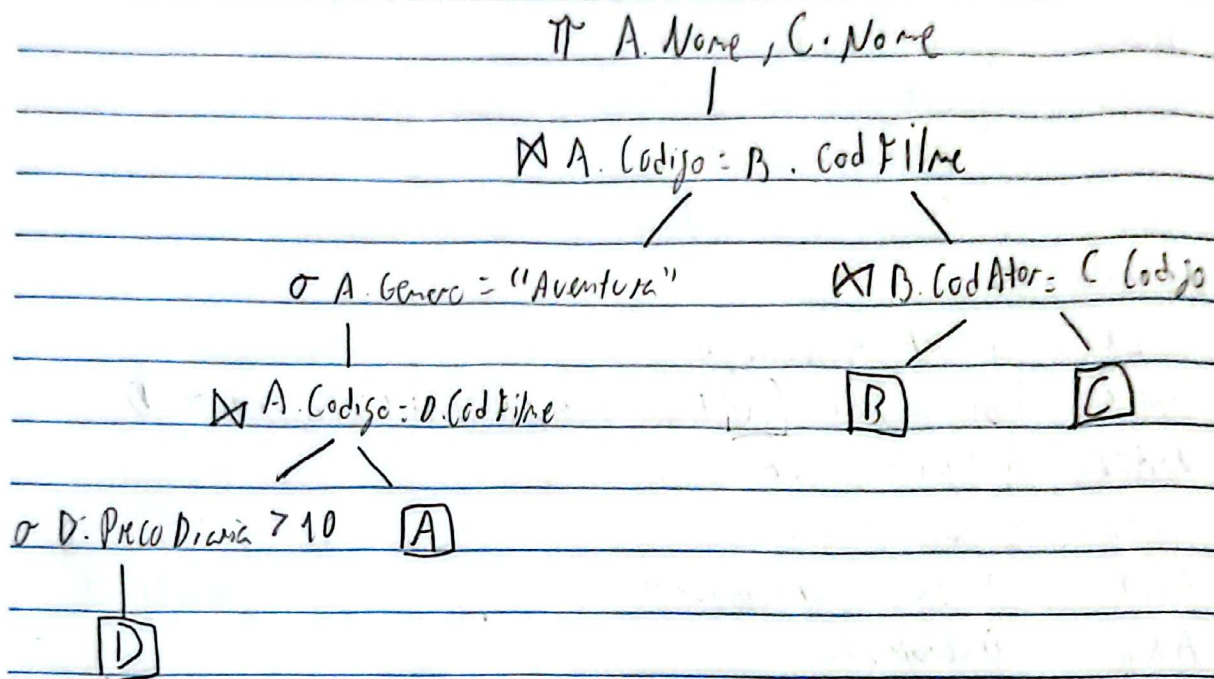 π A.Nome, C.Nome
⋈ A.Codigo = B.CodFilme
σ A.Genero = "Aventura" ⋈ B.CodAtor = C.Codigo
⋈ A.Codigo = D.CodFilme B C
σ D.PrecoDiaria > 10 A
D